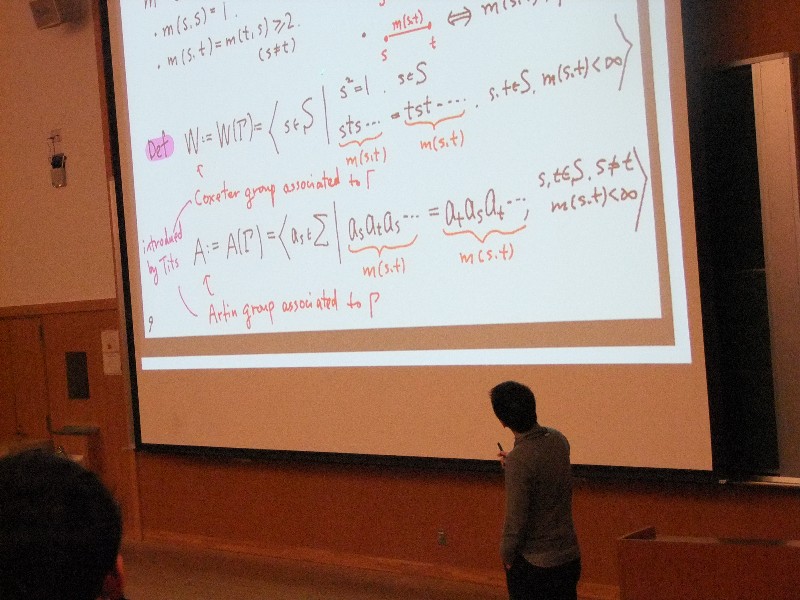 · m(s,s) = 1.
· m(s,t) = m(t,s) ≥ 2. (s≠t)
m(s,t)
s t
⟺
Def W := W(Γ) = ⟨ s∈S | s² = 1 . s∈S
sts··· = tst···· . s,t∈S, m(s,t)<∞ ⟩
m(s,t) m(s,t)
Coxeter group associated to Γ
introduced by Tits
A := A(Γ) = ⟨ a_s ∈ Σ | a_s a_t a_s ··· = a_t a_s a_t ···, s,t∈S, s≠t m(s,t)<∞ ⟩
m(s,t) m(s,t)
Artin group associated to Γ
9